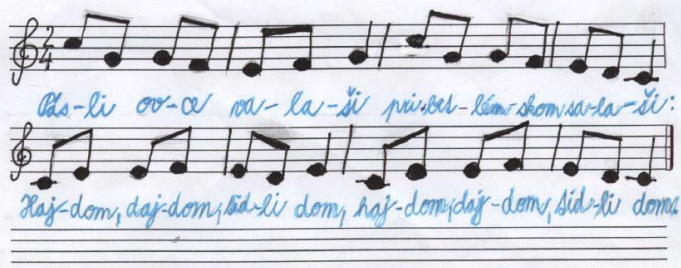 Pás-li ov-ce va-la-ši pri bet-lém-skom sa-la-ši:
Haj-dom, daj-dom, sid-li dom, haj-dom, daj-dom, sid-li dom.